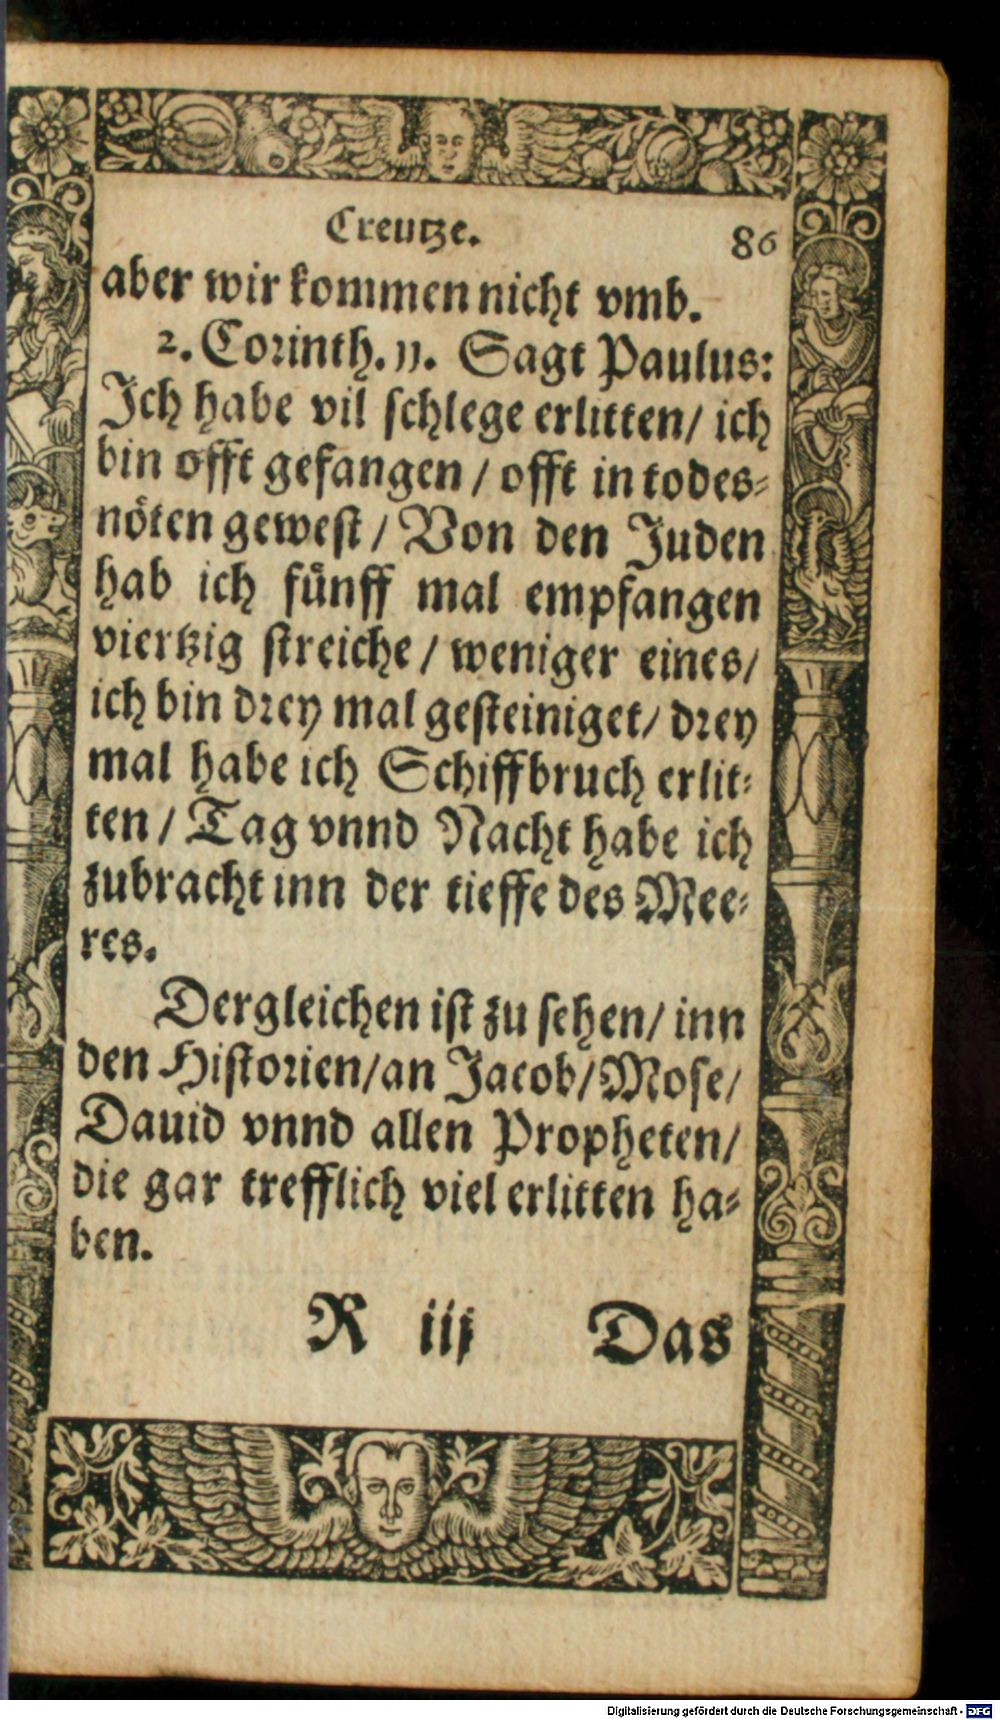 Creutze. 86
aber wir kommen nicht vmb.
2. Corinth. 11. Sagt Paulus:
Ich habe vil schlege erlitten/ ich
bin offt gefangen / offt in todes-
nöten gewest / Von den Juden
hab ich fünff mal empfangen
viertzig streiche / weniger eines/
ich bin drey mal gesteiniget/ drey
mal habe ich Schiffbruch erlit-
ten / Tag vnnd Nacht habe ich
zubracht inn der tieffe des Mee-
res.
Dergleichen ist zu sehen/ inn
den Historien/an Jacob/Mose/
Dauid vnnd allen Propheten/
die gar trefflich viel erlitten ha-
ben.
R iij Das
Digitalisierung gefördert durch die Deutsche Forschungsgemeinschaft - DFG